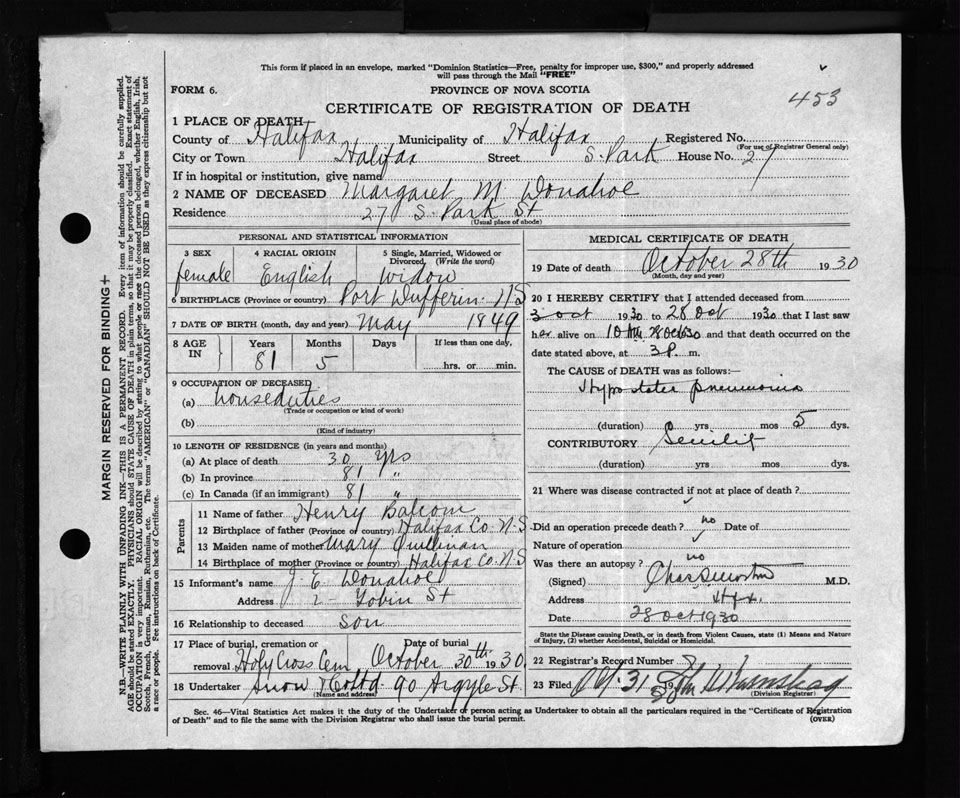 This form if placed in an envelope, marked "Dominion Statistics—Free, penalty for improper use, $300," and properly addressed
will pass through the Mail "FREE"
FORM 6.
PROVINCE OF NOVA SCOTIA
453
CERTIFICATE OF REGISTRATION OF DEATH
1 PLACE OF DEATH
County of Halifax Municipality of Halifax Registered No.
(For use of Registrar General only)
City or Town Halifax Street S. Park House No. 27
If in hospital or institution, give name
2 NAME OF DECEASED Margaret M. Donahoe
Residence 27 S. Park St
(Usual place of abode)
PERSONAL AND STATISTICAL INFORMATION
3 SEX 4 RACIAL ORIGIN 5 Single, Married, Widowed or
Divorced, (Write the word)
female English Widow
6 BIRTHPLACE (Province or country) Port Dufferin N S
7 DATE OF BIRTH (month, day and year) May 1849
8 AGE IN Years Months Days If less than one day,
81 5 hrs. or min.
9 OCCUPATION OF DECEASED
(a) house duties
(Trade or occupation or kind of work)
(b)
(Kind of industry)
10 LENGTH OF RESIDENCE (in years and months)
(a) At place of death 30 yrs
(b) In province 81 "
(c) In Canada (if an immigrant) 81 "
Parents
11 Name of father Henry Balcom
12 Birthplace of father (Province or country) Halifax Co. N. S
13 Maiden name of mother Mary Quillinan
14 Birthplace of mother (Province or country) Halifax Co. N. S
15 Informant's name J. E. Donahoe
Address 2 Tobin St
16 Relationship to deceased son
17 Place of burial, cremation or Date of burial
removal Holy Cross Cem October 30th 1930
18 Undertaker Snow & Co Ltd 90 Argyle St.
MEDICAL CERTIFICATE OF DEATH
19 Date of death October 28th 1930
(Month, day and year)
20 I HEREBY CERTIFY that I attended deceased from
3 Oct 1930 to 28 Oct 1930 that I last saw
her alive on 10 AM 28 Oct 30 and that death occurred on the
date stated above, at 3 P. m.
The CAUSE OF DEATH was as follows:—
Hypostatic pneumonia
(duration) yrs mos 5 dys.
CONTRIBUTORY Senility
(duration) yrs mos dys.
21 Where was disease contracted if not at place of death?
Did an operation precede death? no Date of
Nature of operation
Was there an autopsy? no
(Signed) M.D.
Address Hfx.
Date 28 Oct 1930
State the Disease causing Death, or in death from Violent Causes, state (1) Means and Nature
of Injury, (2) whether Accidental, Suicidal or Homicidal.
22 Registrar's Record Number
23 Filed Oct 31
(Division Registrar)
Sec. 46—Vital Statistics Act makes it the duty of the Undertaker or person acting as Undertaker to obtain all the particulars required in the "Certificate of Registration
of Death" and to file the same with the Division Registrar who shall issue the burial permit.
(OVER)
MARGIN RESERVED FOR BINDING+
N.B.—WRITE PLAINLY WITH UNFADING INK—THIS IS A PERMANENT RECORD. Every item of information should be carefully supplied.
AGE should be stated EXACTLY. PHYSICIANS should STATE CAUSE OF DEATH in plain terms, so that it may be properly classified. Exact statement of
OCCUPATION is very important. RACIAL ORIGIN will be described by stating to what people or race the deceased person belonged, whether English, Irish,
Scotch, French, German, Russian, Ruthenian, etc. The terms "AMERICAN" or "CANADIAN" SHOULD NOT BE USED as they express citizenship but not
a race or people. See instructions on back of Certificate.